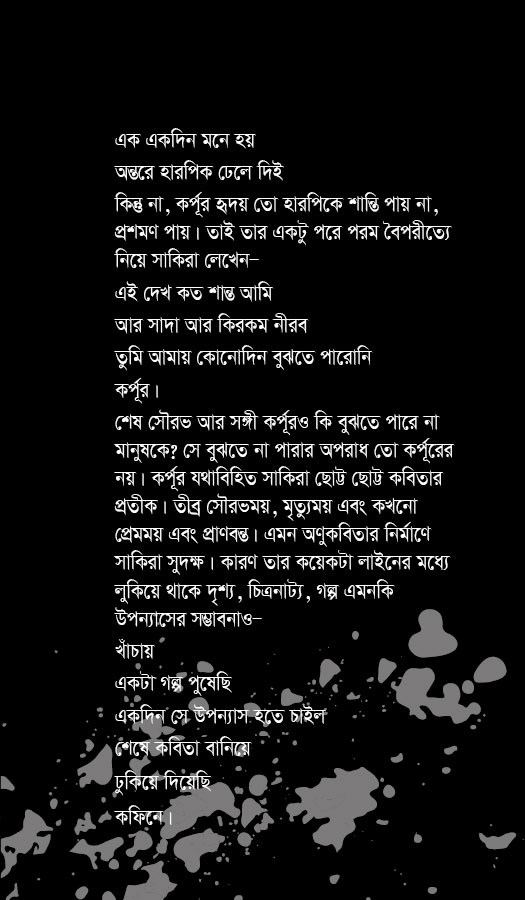 এক একদিন মনে হয়
অন্তরে হারপিক ঢেলে দিই
কিন্তু না, কর্পূর হৃদয় তো হারপিকে শান্তি পায় না,
প্রশমণ পায়। তাই তার একটু পরে পরম বৈপরীত্যে
নিয়ে সাকিরা লেখেন–
এই দেখ কত শান্ত আমি
আর সাদা আর কিরকম নীরব
তুমি আমায় কোনোদিন বুঝতে পারোনি
কর্পূর।
শেষ সৌরভ আর সঙ্গী কর্পূরও কি বুঝতে পারে না
মানুষকে? সে বুঝতে না পারার অপরাধ তো কর্পূরের
নয়। কর্পূর যথাবিহিত সাকিরা ছোট্ট ছোট্ট কবিতার
প্রতীক। তীব্র সৌরভময়, মৃত্যুময় এবং কখনো
প্রেমময় এবং প্রাণবন্ত। এমন অণুকবিতার নির্মাণে
সাকিরা সুদক্ষ। কারণ তার কয়েকটা লাইনের মধ্যে
লুকিয়ে থাকে দৃশ্য, চিত্রনাট্য, গল্প এমনকি
উপন্যাসের সম্ভাবনাও–
খাঁচায়
একটা গল্প পুষেছি
একদিন সে উপন্যাস হতে চাইল
শেষে কবিতা বানিয়ে
ঢুকিয়ে দিয়েছি
কফিনে।